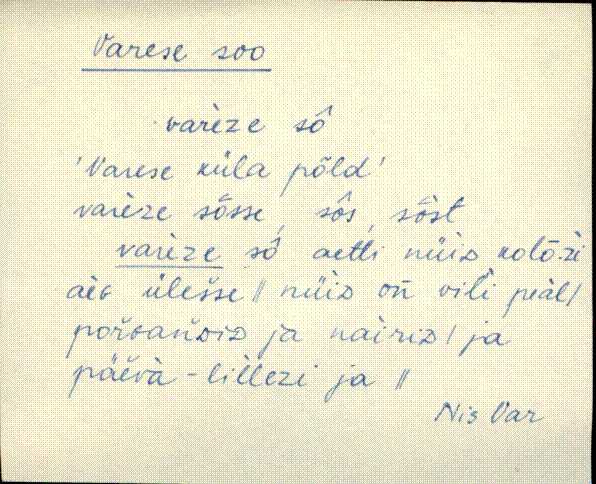 Varese soo
varèze sô
'Varese küla põld'
varèze sõsse, sôs, sõst
varèze sô aetti nüiᴅ kolõ·zi
aèɢ ülešse // nüiᴅ oñ vili peàl /
porɢañᴅiᴅ ja nàiriᴅ / ja
päèvà-lillezi ja //
Nis Var